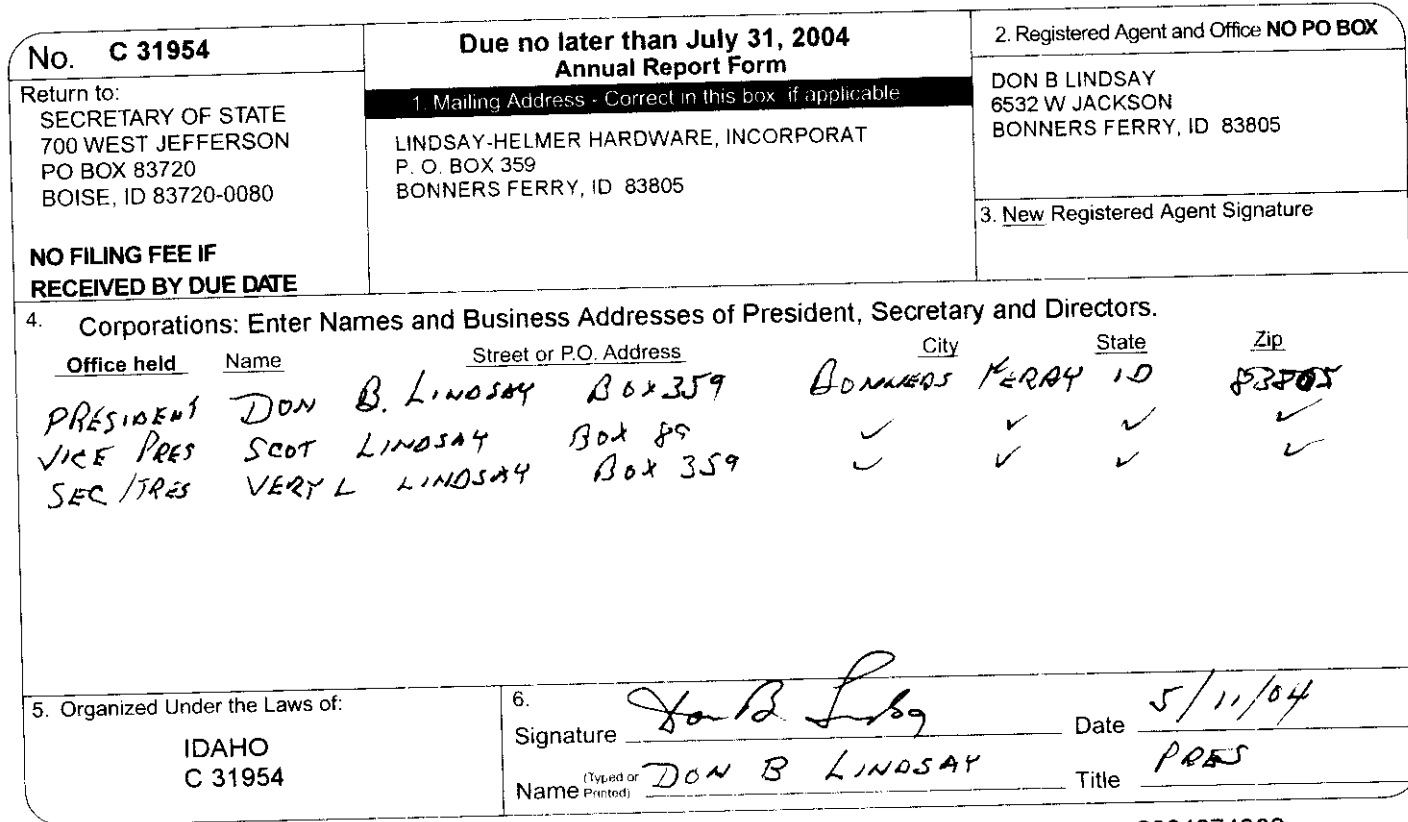 No. C 31954
Return to:
SECRETARY OF STATE
700 WEST JEFFERSON
PO BOX 83720
BOISE, ID 83720-0080
NO FILING FEE IF
RECEIVED BY DUE DATE
Due no later than July 31, 2004
Annual Report Form
1. Mailing Address - Correct in this box if applicable
LINDSAY-HELMER HARDWARE, INCORPORAT
P. O. BOX 359
BONNERS FERRY, ID 83805
2. Registered Agent and Office NO PO BOX
DON B LINDSAY
6532 W JACKSON
BONNERS FERRY, ID 83805
3. New Registered Agent Signature
4. Corporations: Enter Names and Business Addresses of President, Secretary and Directors.
Office held Name Street or P.O. Address City State Zip
PRESIDENT DON B. LINDSAY BOX 359 BONNERS FERRY ID 83805
VICE PRES SCOT LINDSAY BOX 89 ✓ ✓ ✓ ✓
SEC/TRES VERY L LINDSAY BOX 359 ✓ ✓ ✓ ✓
5. Organized Under the Laws of:
IDAHO
C 31954
6.
Signature Don B Lindsay Date 5/11/04
Name (Typed or Printed) DON B LINDSAY Title PRES